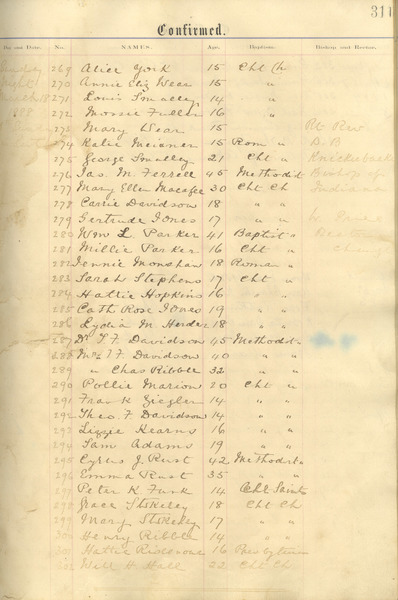 311
Confirmed.
Day and Date. No. NAMES. Age. Baptism. Bishop and Rector.
269 Alice York 15 Cht Ch
270 Annie Eliz Wear 15 "
271 Louis Smalley 14 "
272 Mossie Fuller 16 " Rt Rev
273 Mary Wear 15 D. B
274 Katie Meisner 15 Rom " Knickerbacker
275 George Smalley 21 Cht " Bishop of
276 Jas. M. Ferrell 45 Methodist Indiana
277 Mary Ellen Macafee 30 Cht Ch
278 Carrie Davidson 18 "
279 Gertrude Jones 17 " "
280 Wm L. Parker 41 Baptist "
281 Millie Parker 16 Cht "
282 Jennie Monahan 18 Roman "
283 Sarah Stephens 17 Cht "
284 Hattie Hopkins 16 " "
285 Cath Rose Jones 19 " "
286 Lydia M. Herder 18 " "
287 Dr T F Davidson 45 Methodist
288 Mrs T F Davidson 40 " "
289 " Chas Ribble 32 "
290 Pollie Marion 20 Cht "
291 Frank Ziegler 14 " "
292 Theo. F Davidson 14 " "
293 Lizzie Kearns 16 " "
294 Sam Adams 19 " "
295 Cyrus J. Rust 42 Methodist "
296 Emma Rust 35 " "
297 Peter K Funk 14 Cht Saints
298 Grace Stokeley 18 Cht Ch
299 Mary Stokeley 17 " "
300 Henry Ribble 14 " "
301 Hattie Ridenour 16 Presbyterian
302 Will H. Hall 22 Cht Ch